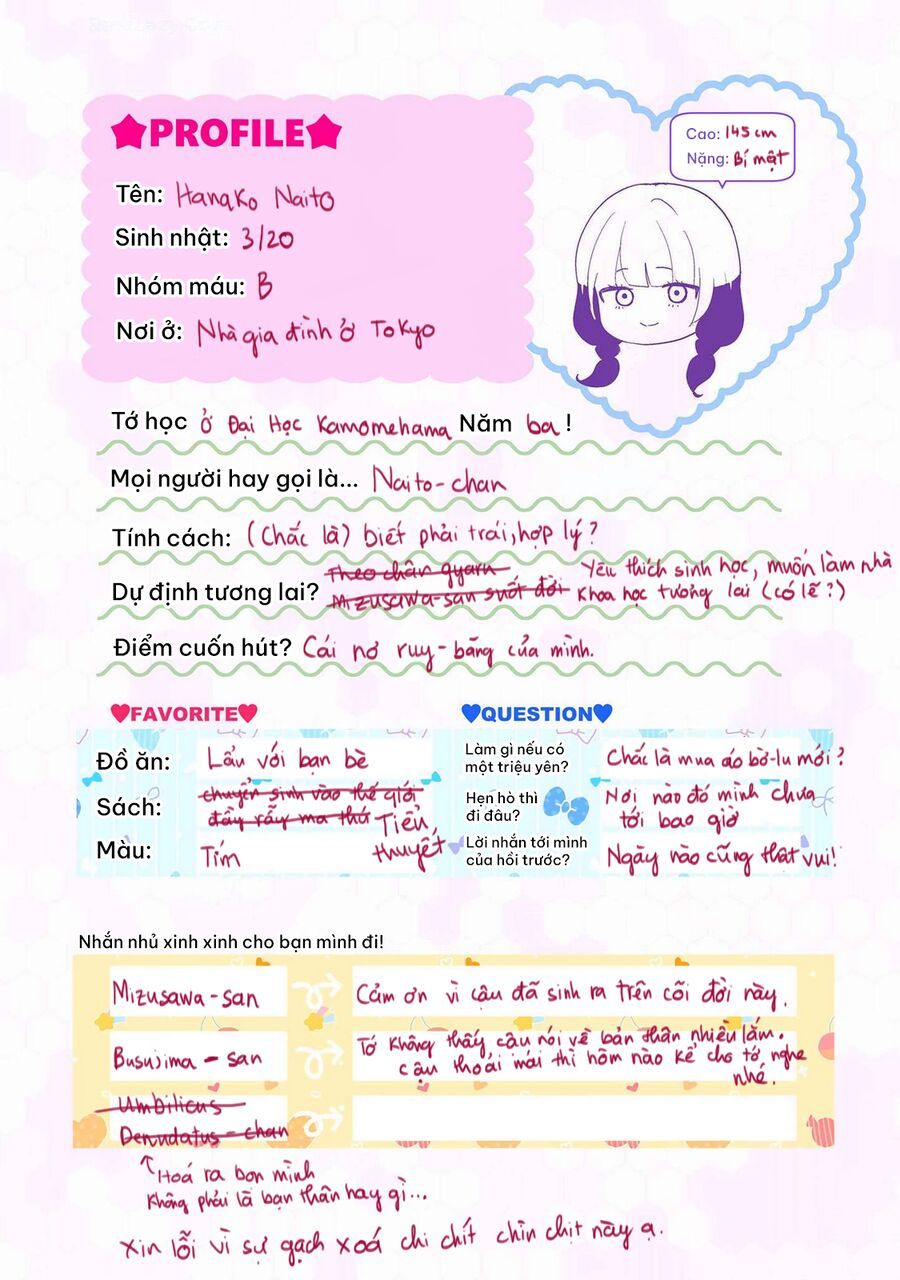 ★PROFILE★
Cao: 145 cm
Nặng: Bí mật
Tên: Hanako Naito
Sinh nhật: 3/20
Nhóm máu: B
Nơi ở: Nhà gia đình ở Tokyo
Tớ học ở Đại Học Kamomehama Năm ba!
Mọi người hay gọi là... Naito-chan
Tính cách: (Chắc là) biết phải trái, hợp lý?
Dự định tương lai? Theo chân gyaru
Mizusawa-san suốt đời
Yêu thích sinh học, muốn làm nhà
khoa học tương lai (có lẽ?)
Điểm cuốn hút? Cái nơ ruy-băng của mình.
♥FAVORITE♥
Đồ ăn: Lẩu với bạn bè
Sách: chuyển sinh vào thế giới
đầy rẫy ma thú Tiểu
thuyết
Màu: Tím
♥QUESTION♥
Làm gì nếu có
một triệu yên?
Chắc là mua áo bờ-lu mới?
Hẹn hò thì
đi đâu?
Nơi nào đó mình chưa
tới bao giờ
Lời nhắn tới mình
của hồi trước?
Ngày nào cũng thật vui!
Nhắn nhủ xinh xinh cho bạn mình đi!
Mizusawa-san
Cảm ơn vì cậu đã sinh ra trên cõi đời này.
Busujima-san
Tớ không thấy cậu nói về bản thân nhiều lắm.
Cậu thoải mái thì hôm nào kể cho tớ nghe
nhé.
Umbilicus
Denudatus-chan
Hoá ra bọn mình
không phải là bạn thân hay gì...
Xin lỗi vì sự gạch xoá chi chít chìn chịt này ạ.